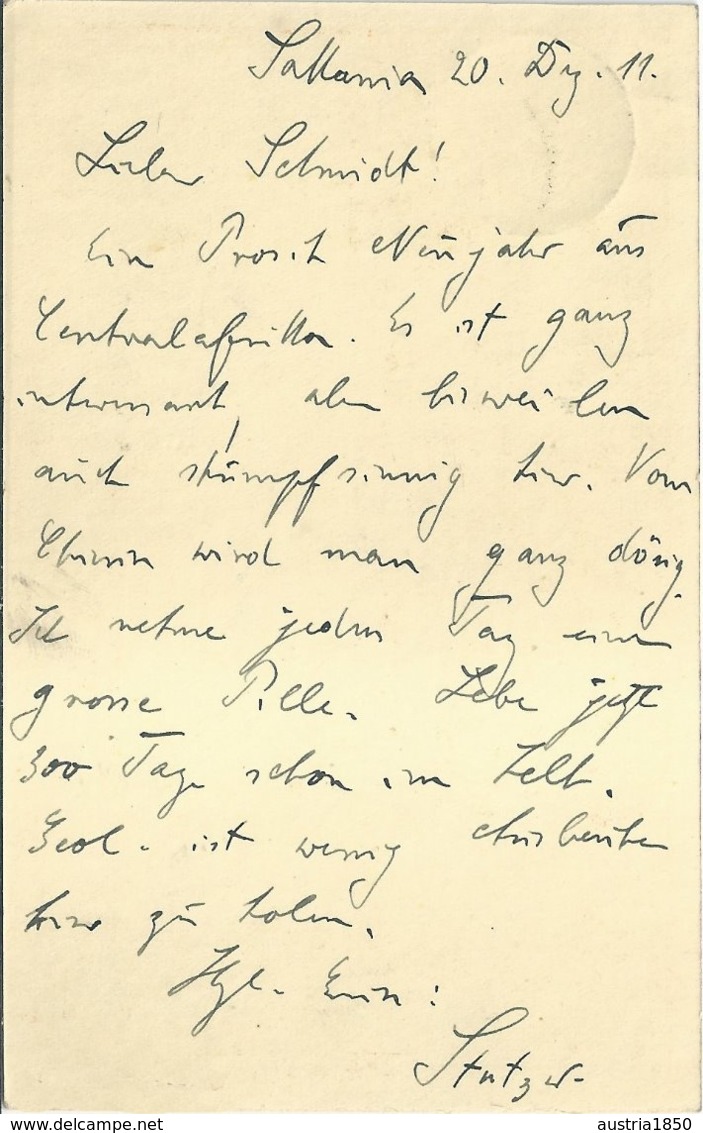 Sakania 20. Dez. 11.
Lieber Schmidt!
Ein Prosit Neujahr aus
Centralafrika. Es ist ganz
interessant, aber bisweilen
auch stumpfsinnig hier. Vom
Chinin wird man ganz dösig.
Ich nehme jeden Tag eine
grosse Pille. Lebe jetzt
300 Tage schon im Zelt.
Geol. ist wenig Ausbeute
hier zu holen.
Hzl. Ihr:
Stutzer
austria1850